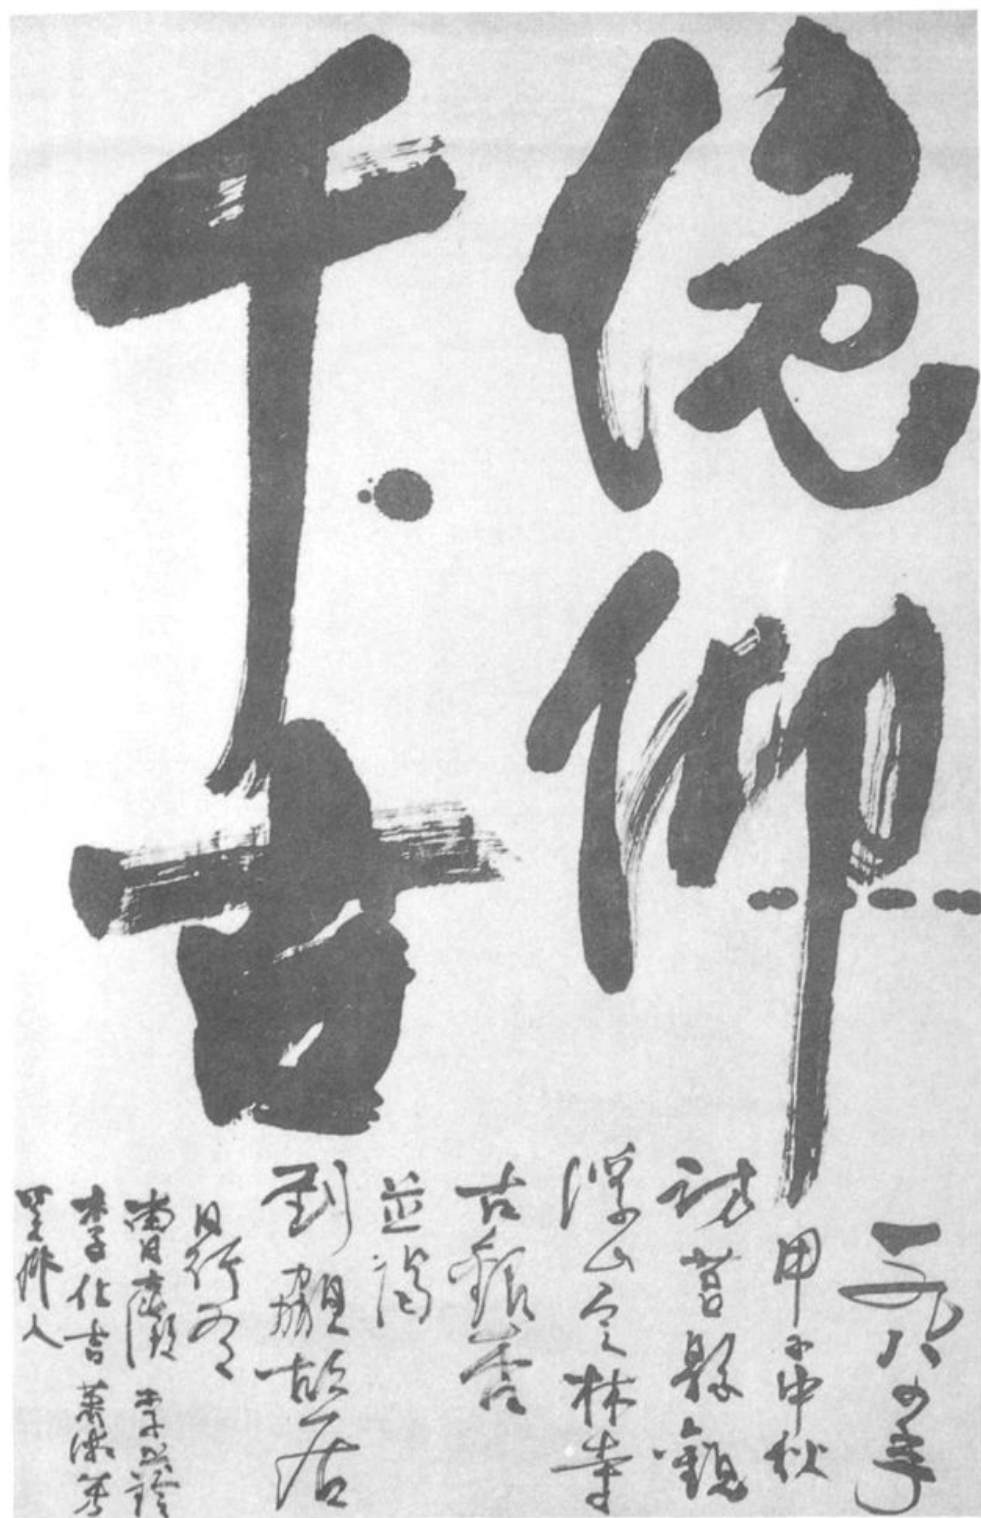 俛仰
千古
一九八四年
甲子中秋
訪莒縣觀
浮山定林寺
古銀杏
並謁
劉勰故居
同行者
李
李仕吉 蕭
人